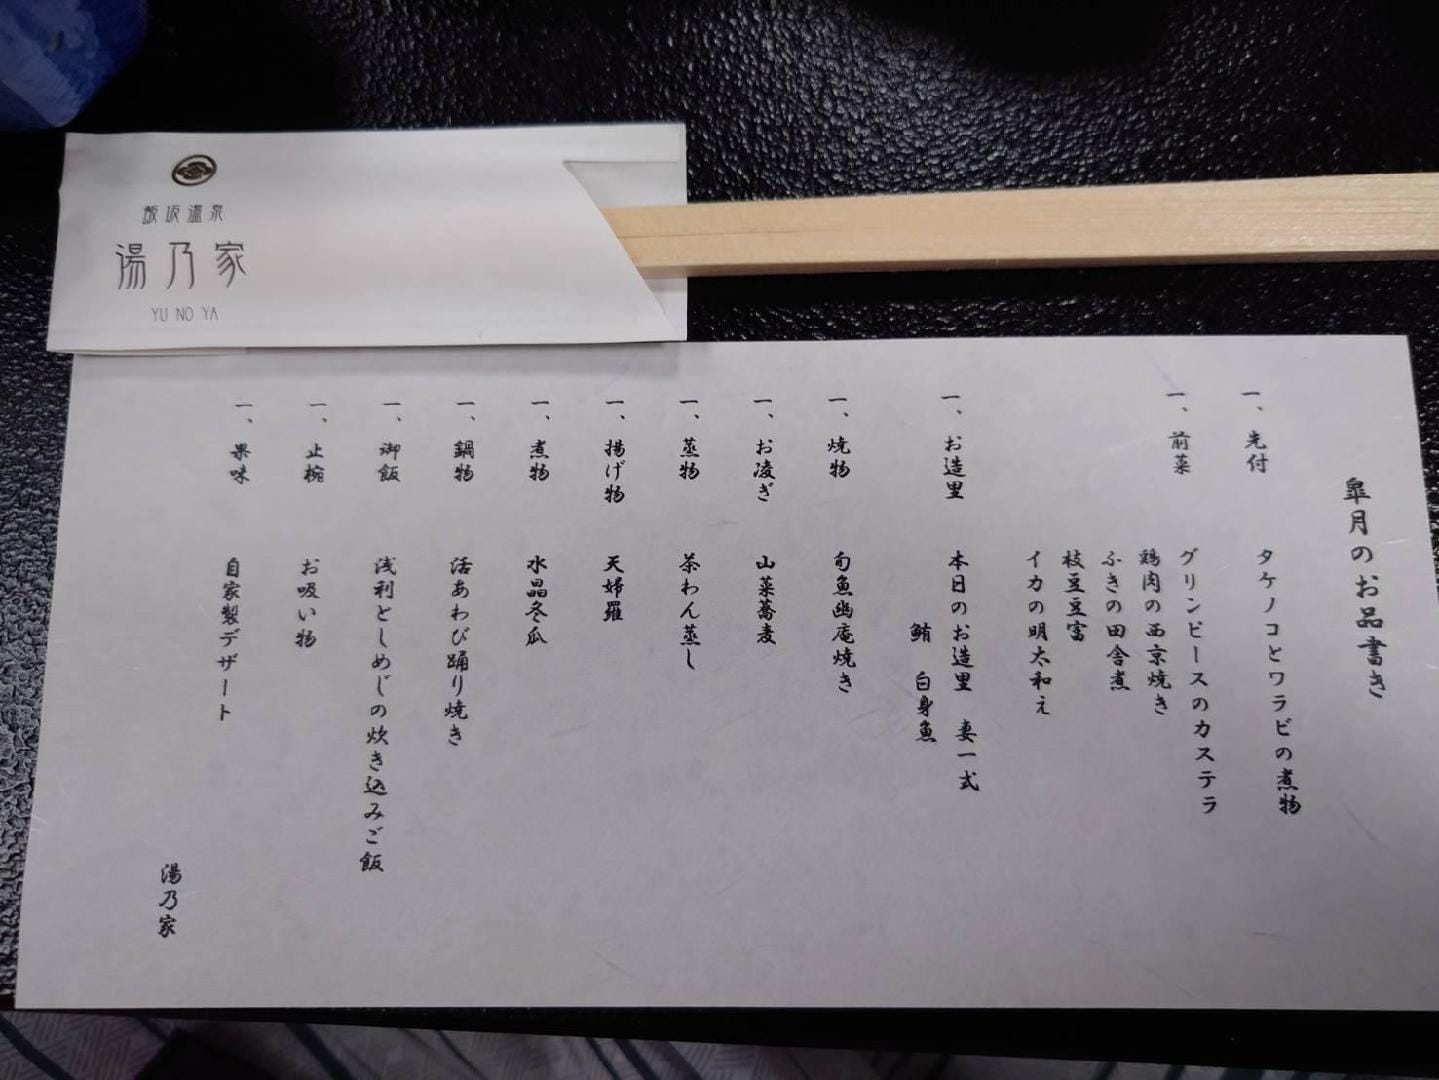 飯坂温泉
湯乃家
YU NO YA
皐月のお品書き
一、先付 タケノコとワラビの煮物
一、前菜 グリンピースのカステラ
鶏肉の西京焼き
ふきの田舎煮
枝豆豆富
イカの明太和え
一、お造里 本日のお造里 妻一式
鮪 白身魚
一、焼物 旬魚幽庵焼き
一、お凌ぎ 山菜蕎麦
一、蒸物 茶わん蒸し
一、揚げ物 天婦羅
一、煮物 水晶冬瓜
一、鍋物 活あわび踊り焼き
一、御飯 浅利としめじの炊き込みご飯
一、止椀 お吸い物
一、果味 自家製デザート
湯乃家